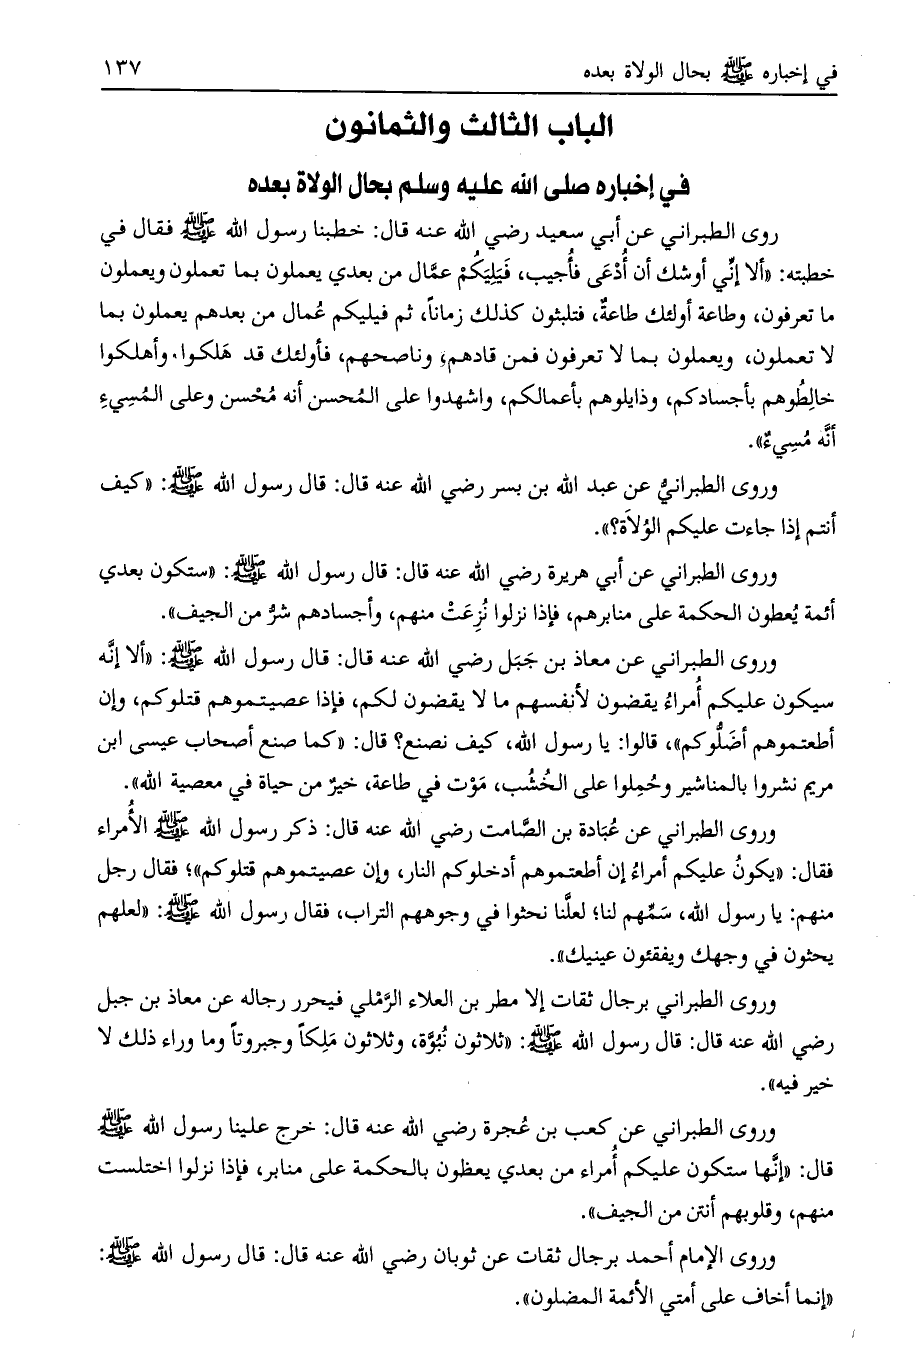 في إخباره ﷺ بحال الولاة بعده ١٣٧
الباب الثالث والثمانون
في إخباره صلى الله عليه وسلم بحال الولاة بعده
روى الطبراني عن أبي سعيد رضي الله عنه قال: خطبنا رسول الله ﷺ فقال في
خطبته: «ألا إنِّي أوشك أن أُدْعَى فأُجيب، فَيَلِيَكُمْ عمَّال من بعدي يعملون بما تعملون ويعملون
ما تعرفون، وطاعة أولئك طاعةٌ، فتلبثون كذلك زماناً، ثم فيليكم عُمال من بعدهم يعملون بما
لا تعملون، ويعملون بما لا تعرفون فمن قادهم، وناصحهم، فأولئك قد هَلكوا، وأهلكوا
خالِطُوهم بأجسادكم، وذايلوهم بأعمالكم، واشهدوا على المُحسن أنه مُحْسن وعلى المُسِيءِ
أنَّه مُسِيءٌ».
وروى الطبرانيُّ عن عبد الله بن بسر رضي الله عنه قال: قال رسول الله ﷺ: «كيف
أنتم إذا جاءت عليكم الوُلاَة؟».
وروى الطبراني عن أبي هريرة رضي الله عنه قال: قال رسول الله ﷺ: «ستكون بعدي
أئمة يُعطون الحكمة على منابرهم، فإذا نزلوا نُزِعَتْ منهم، وأجسادهم شرُّ من الجيف».
وروى الطبراني عن معاذ بن جَبَل رضي الله عنه قال: قال رسول الله ﷺ: «ألا إنَّه
سيكون عليكم أُمراءُ يقضون لأنفسهم ما لا يقضون لكم، فإذا عصيتموهم قتلوكم، وإن
أطعتموهم أضَلُّوكم»، قالوا: يا رسول الله، كيف نصنع؟ قال: «كما صنع أصحاب عيسى ابن
مريم نشروا بالمناشير وحُمِلوا على الخُشُب، مَوْت في طاعة، خيرٌ من حياة في معصية الله».
وروى الطبراني عن عُبَادة بن الصَّامت رضي الله عنه قال: ذكر رسول الله ﷺ الأُمراء
فقال: «يكونُ عليكم أمراءُ إن أطعتموهم أدخلوكم النار، وإن عصيتموهم قتلوكم»؛ فقال رجل
منهم: يا رسول الله، سَمِّهم لنا؛ لعلَّنا نحثوا في وجوههم التراب، فقال رسول الله ﷺ: «لعلهم
يحثون في وجهك ويفقئون عينيك».
وروى الطبراني برجال ثقات إلا مطر بن العلاء الرَّمْلي فيحرر رجاله عن معاذ بن جبل
رضي الله عنه قال: قال رسول الله ﷺ: «ثلاثون نُبُوَّة، وثلاثون مَلِكاً وجبروتاً وما وراء ذلك لا
خير فيه».
وروى الطبراني عن كعب بن عُجرة رضي الله عنه قال: خرج علينا رسول الله ﷺ
قال: «إنَّها ستكون عليكم أُمراء من بعدي يعظون بالحكمة على منابر، فإذا نزلوا اختلست
منهم، وقلوبهم أنتن من الجيف».
وروى الإمام أحمد برجال ثقات عن ثوبان رضي الله عنه قال: قال رسول الله ﷺ:
«إنما أخاف على أمتي الأئمة المضلون».